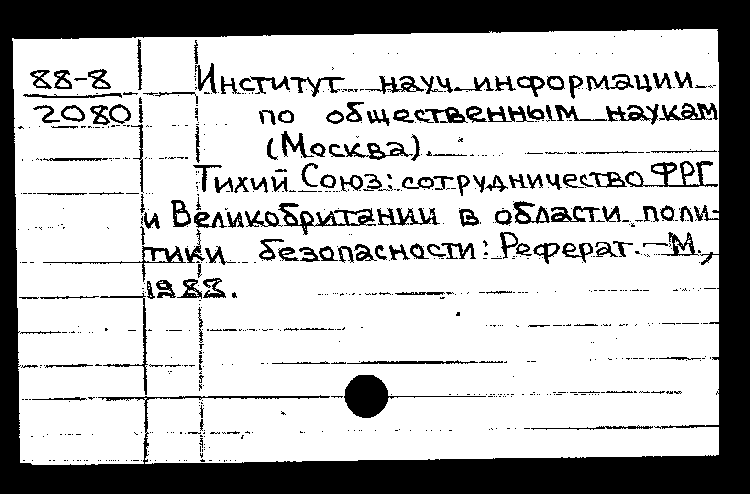 88-8
2080
Институт науч. информации
по общественным наукам
(Москва).
Тихий Союз: сотрудничество ФРГ
и Великобритании в области поли-
тики безопасности: Реферат. — М.,
1988.